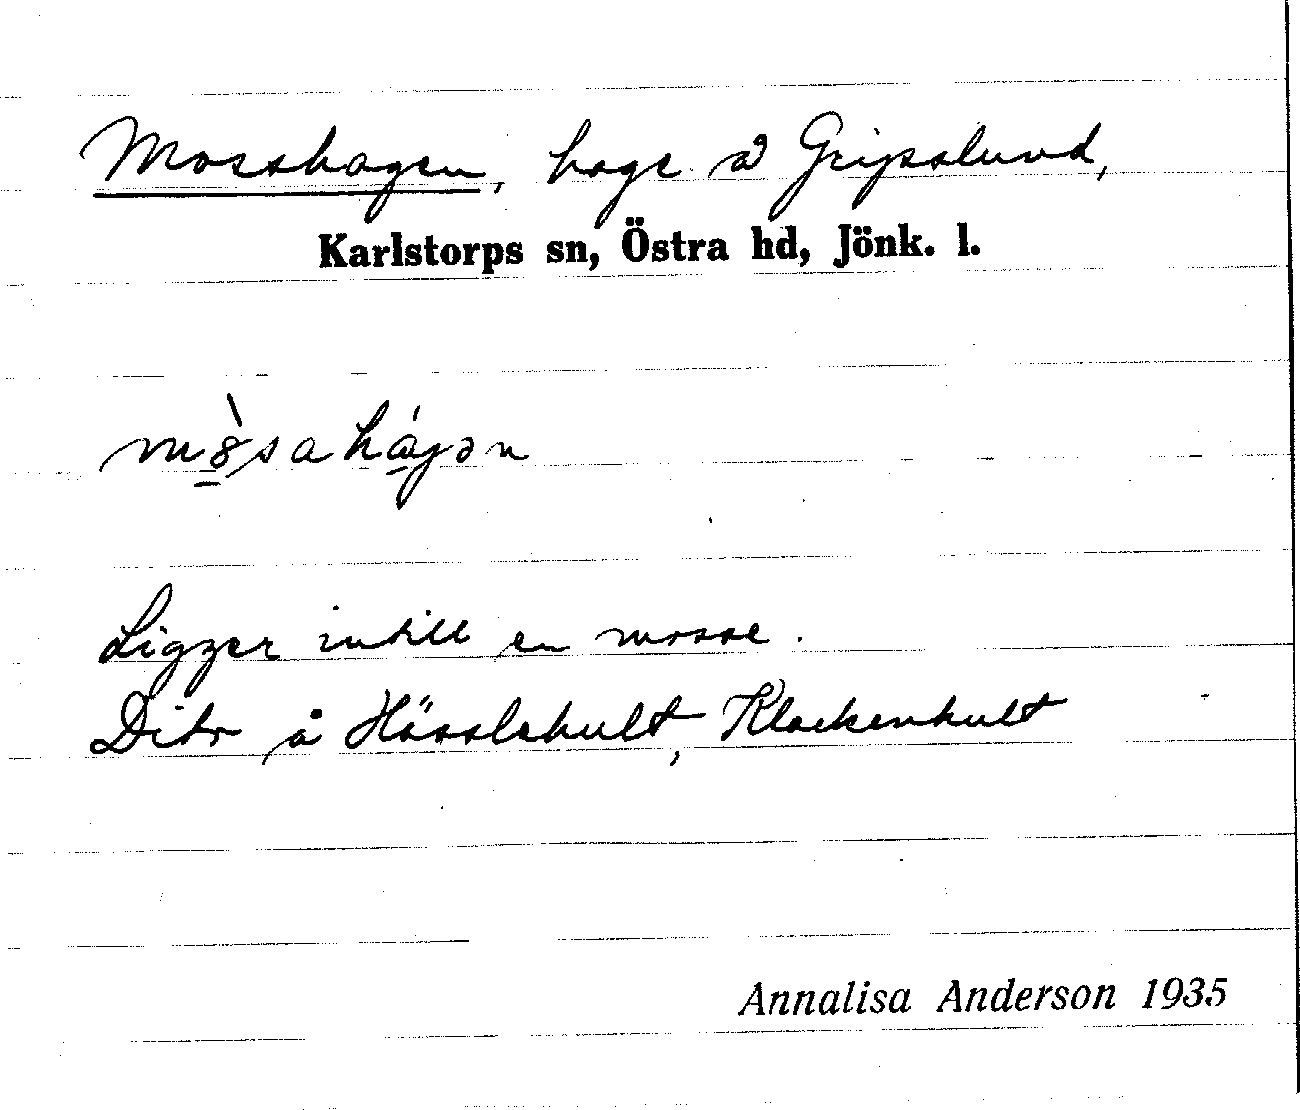 Mosshagen, hage å Gripslund,
Karlstorps sn, Östra hd, Jönk. l.
Ligger intill en mosse.
Dito å Hässlekult, Klockenhult
Annalisa Anderson 1935